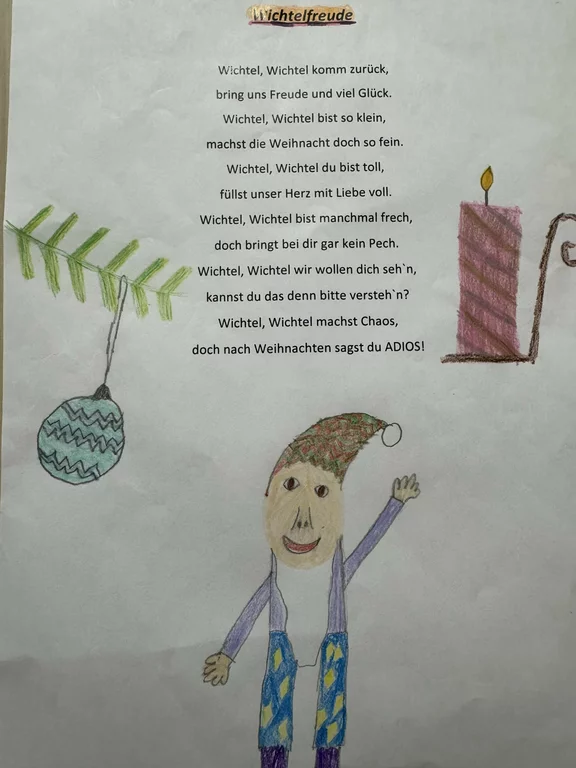 Wichtelfreude
Wichtel, Wichtel komm zurück,
bring uns Freude und viel Glück.
Wichtel, Wichtel bist so klein,
machst die Weihnacht doch so fein.
Wichtel, Wichtel du bist toll,
füllst unser Herz mit Liebe voll.
Wichtel, Wichtel bist manchmal frech,
doch bringt bei dir gar kein Pech.
Wichtel, Wichtel wir wollen dich seh`n,
kannst du das denn bitte versteh`n?
Wichtel, Wichtel machst Chaos,
doch nach Weihnachten sagst du ADIOS!